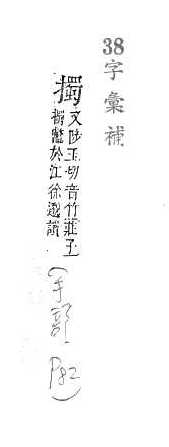 38字彙補
擉又陟玉切音竹莊子
擉鼈於江徐邈讀
(手部 P82)